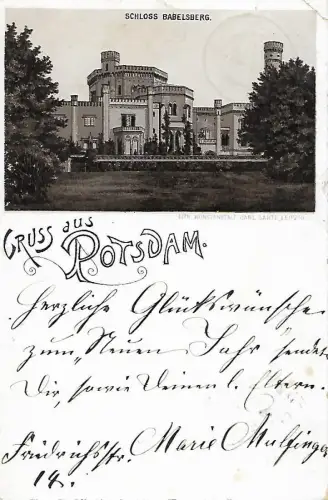 SCHLOSS BABELSBERG.
LITH. KUNSTANSTALT CARL GARTE, LEIPZIG
GRUSS aus
POTSDAM.
Herzliche Glückwünsche
zum „Neuen Jahr“ sendet
Dir, sowie Deinen l. Eltern
Marie Mulfinger
Friedrichsstr.
18.